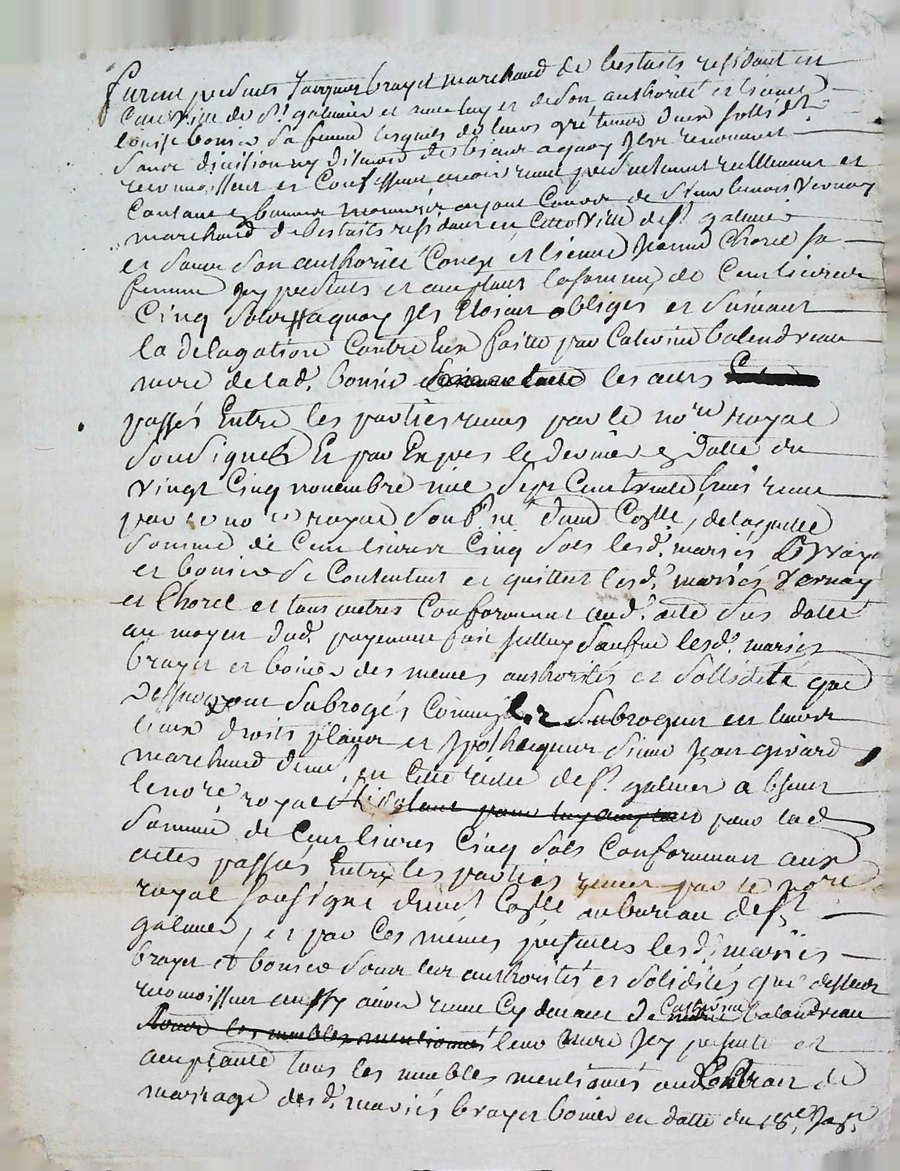 furent presents Jacques brayet marchand de bestails residant en
Cette Ville de St galmier et avec luy et de son authorité et licence
louise bouier sa femme lesquels de leurs gré tenue deux sollidt
sans division ny discution de biens a quoy Ils renoncent
reconnoissent et Confessent avoir receu presentement reellement et
Contant en bonne monnoye ayant Cours de Sieur benoit Vernay
marchand de bestails residant en Cette Ville de St galmier
et sous son authorité Congé et licence Jeanne Chorel sa
femme Icy presents et acceptants la somme de Cent livres
Cinq sols a quoy Ils Etoient obligés et suivant
la delagation Contre Eux faitte par Catherine balandreau
mere de lad. bouier les actes
passés Entre les parties receus par le nore royal
soussigné Et par Exprès le dernier en Datte du
vingt Cinq novembre mil sept Cent trente huit receu
par le no re royal soussigné deuet Collé, de laquelle
somme de Cent livres Cinq sols lesd. mariés Brayet
et bouier se Contentent et quittent lesd. mariés Vernay
et Chorel et tous autres Conformement aud. acte sus datté
au moyen dud. payement fait lesd. mariés
brayet et bouier des memes authorités et sollidité que
dessus ont subrogés Comme subrogent en leurs
lieux droits places et hypotheques sieur Jean girard
marchand en Cette Ville de St galmier absent
le nore royal pour lad
somme de Cent livres Cinq sols Conformement aux
actes passés Entre les parties receus par le nore
royal soussigné deuet Collé au bureau de St
galmier, et par Ces mémes presentes lesd. mariés
brayet et bouier sous leur authorités et solidités que dessus
reconnoissent aussy avoir receu Cy devant de Catherine balandreau
leur mere Icy presente et
acceptante tous les meubles mentionnés aud Contrat de
mariage desd. mariés brayet bouier en datte du 18e